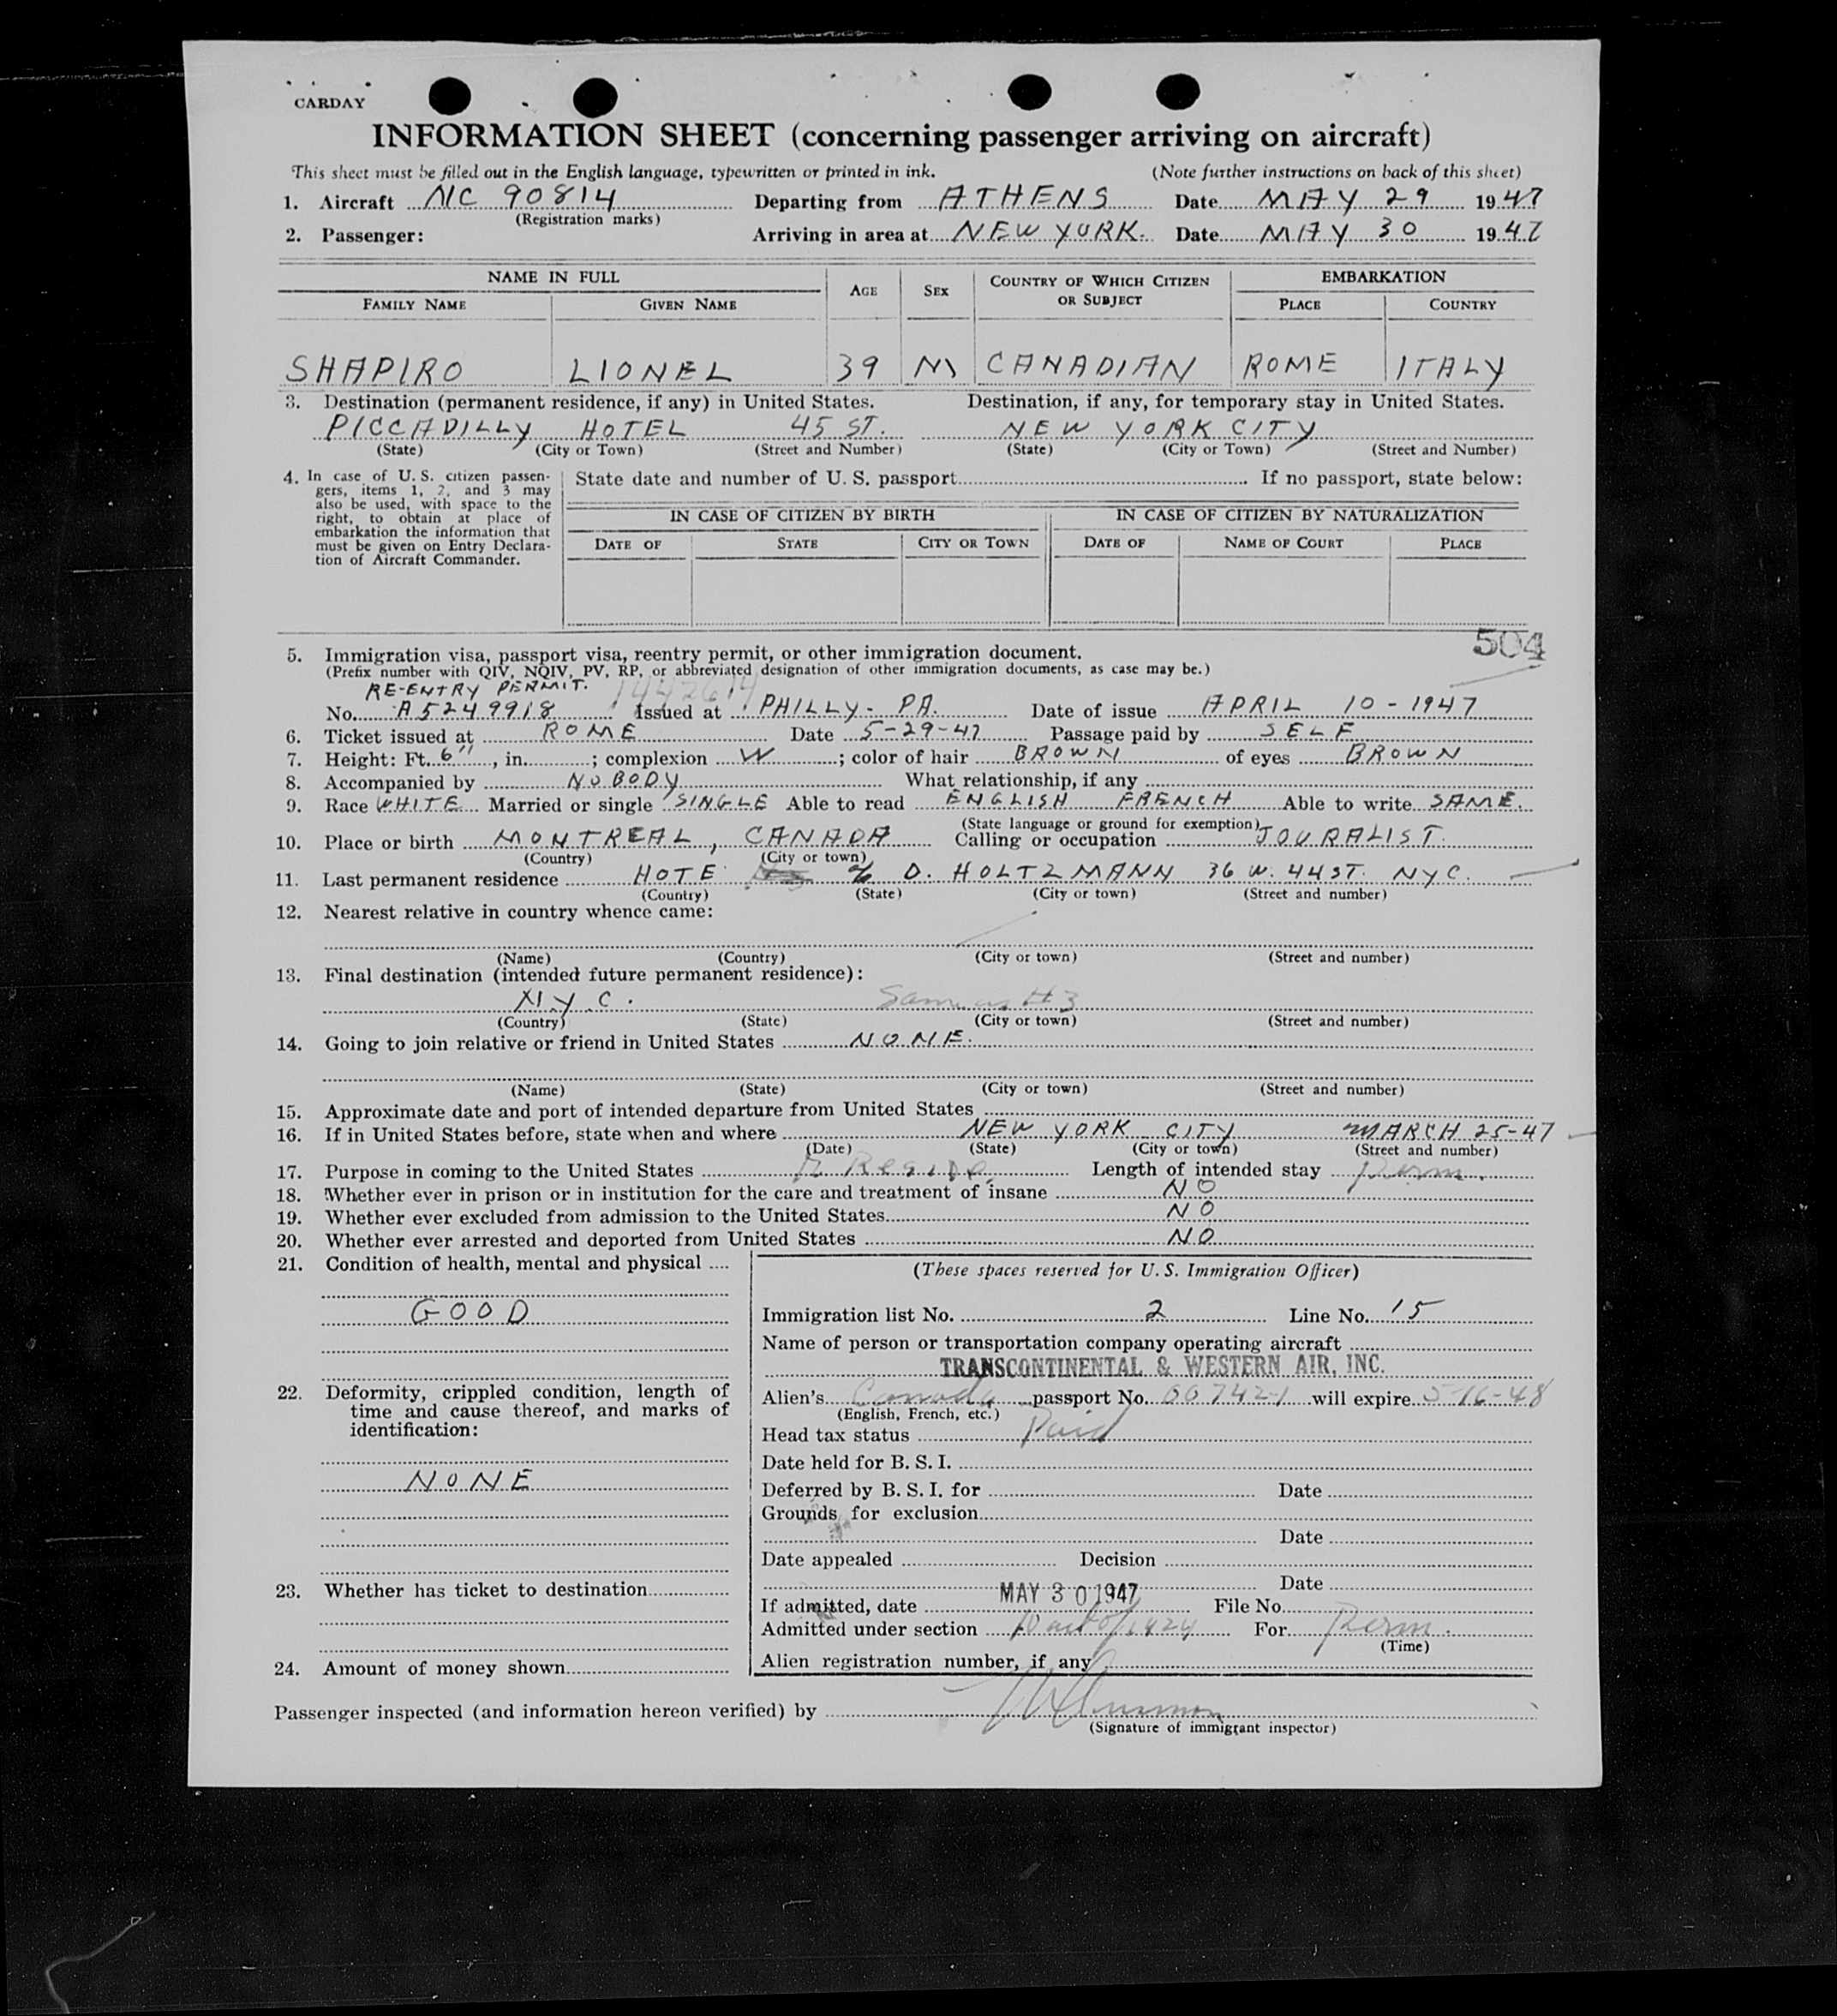 CARDAY
INFORMATION SHEET (concerning passenger arriving on aircraft)
This sheet must be filled out in the English language, typewritten or printed in ink. (Note further instructions on back of this sheet)
1. Aircraft NC 90814 Departing from ATHENS Date MAY 29 1947
(Registration marks)
2. Passenger: Arriving in area at NEW YORK. Date MAY 30 1947
NAME IN FULL AGE SEX COUNTRY OF WHICH CITIZEN OR SUBJECT EMBARKATION
FAMILY NAME GIVEN NAME PLACE COUNTRY
SHAPIRO LIONEL 39 M CANADIAN ROME ITALY
3. Destination (permanent residence, if any) in United States. Destination, if any, for temporary stay in United States.
PICCADILLY HOTEL 45 ST. NEW YORK CITY
(State) (City or Town) (Street and Number) (State) (City or Town) (Street and Number)
4. In case of U. S. citizen passen-
gers, items 1, 2, and 3 may
also be used, with space to the
right, to obtain at place of
embarkation the information that
must be given on Entry Declara-
tion of Aircraft Commander.
State date and number of U. S. passport. If no passport, state below:
IN CASE OF CITIZEN BY BIRTH IN CASE OF CITIZEN BY NATURALIZATION
DATE OF STATE CITY OR TOWN DATE OF NAME OF COURT PLACE
504
5. Immigration visa, passport visa, reentry permit, or other immigration document.
(Prefix number with QIV, NQIV, PV, RP, or abbreviated designation of other immigration documents, as case may be.)
RE-ENTRY PERMIT. 1442614
No. A5249918 Issued at PHILLY - PA. Date of issue APRIL 10 - 1947
6. Ticket issued at ROME Date 5-29-47 Passage paid by SELF
7. Height: Ft. 6", in. ; complexion W ; color of hair BROWN of eyes BROWN
8. Accompanied by NOBODY What relationship, if any
9. Race WHITE Married or single SINGLE Able to read ENGLISH FRENCH Able to write SAME.
(State language or ground for exemption)
10. Place or birth MONTREAL, CANADA Calling or occupation JOURALIST.
(Country) (City or town)
11. Last permanent residence HOTE % D. HOLTZMANN 36 W. 44 ST. NYC.
(Country) (State) (City or town) (Street and number)
12. Nearest relative in country whence came:
(Name) (Country) (City or town) (Street and number)
13. Final destination (intended future permanent residence):
N.Y.C. Same as #3
(Country) (State) (City or town) (Street and number)
14. Going to join relative or friend in United States NONE.
(Name) (State) (City or town) (Street and number)
15. Approximate date and port of intended departure from United States
16. If in United States before, state when and where NEW YORK CITY MARCH 25-47
(Date) (State) (City or town) (Street and number)
17. Purpose in coming to the United States To Reside Length of intended stay perm.
18. Whether ever in prison or in institution for the care and treatment of insane NO
19. Whether ever excluded from admission to the United States NO
20. Whether ever arrested and deported from United States NO
21. Condition of health, mental and physical
GOOD
22. Deformity, crippled condition, length of
time and cause thereof, and marks of
identification:
NONE
23. Whether has ticket to destination
24. Amount of money shown
(These spaces reserved for U. S. Immigration Officer)
Immigration list No. 2 Line No. 15
Name of person or transportation company operating aircraft
TRANSCONTINENTAL & WESTERN AIR, INC.
Alien's Canada passport No. 667421 will expire 5-16-48
(English, French, etc.)
Head tax status Paid
Date held for B. S. I.
Deferred by B. S. I. for Date
Grounds for exclusion
Date
Date appealed Decision
Date
If admitted, date MAY 30 1947 File No.
Admitted under section of 1924 For Perm.
(Time)
Alien registration number, if any
Passenger inspected (and information hereon verified) by
(Signature of immigrant inspector)